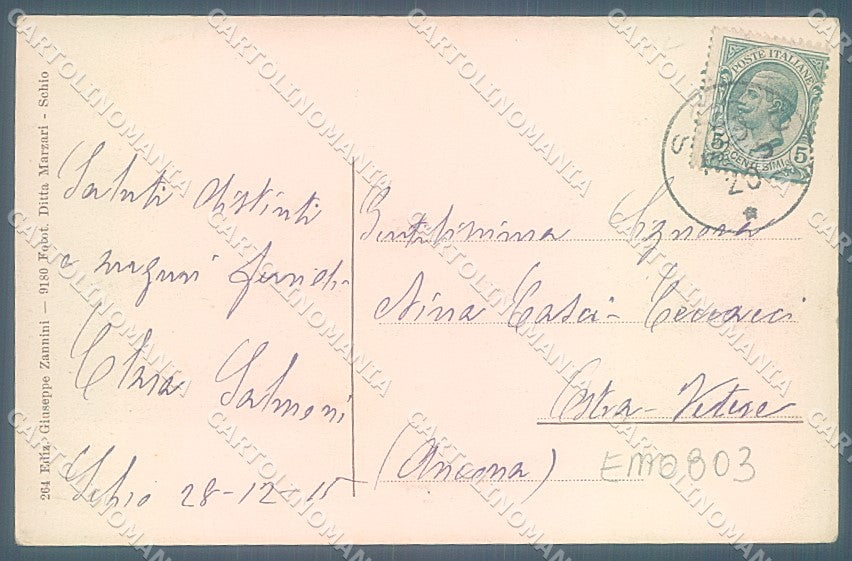 264 Ediz. Giuseppe Zannini — 9180 Fotot. Ditta Marzari - Schio
Saluti distinti
e auguri fervidi
Clara Salmoni
Schio 28-12-15
POSTE ITALIANE
5 CENTESIMI 5
Gentilissima Signora
Nina Casci-Ceccacci
Ostra-Vetere
(Ancona)
EM0803
CARTOLINOMANIA